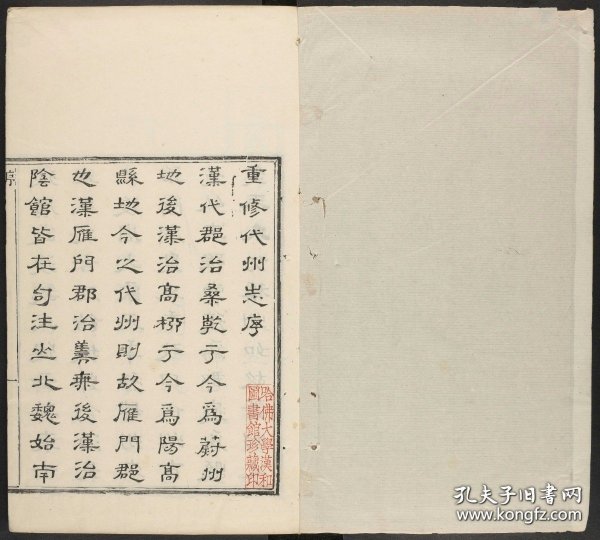 重修代州志序
漢代郡治桑乾于今爲蔚州
地後漢治高柳于今爲陽高
縣地今之代州則故雁門郡
也漢雁門郡治善無後漢治
陰館皆在句注之北魏始南
序
哈佛大學漢和
圖書館珍藏印
孔夫子旧书网
www.kongfz.com